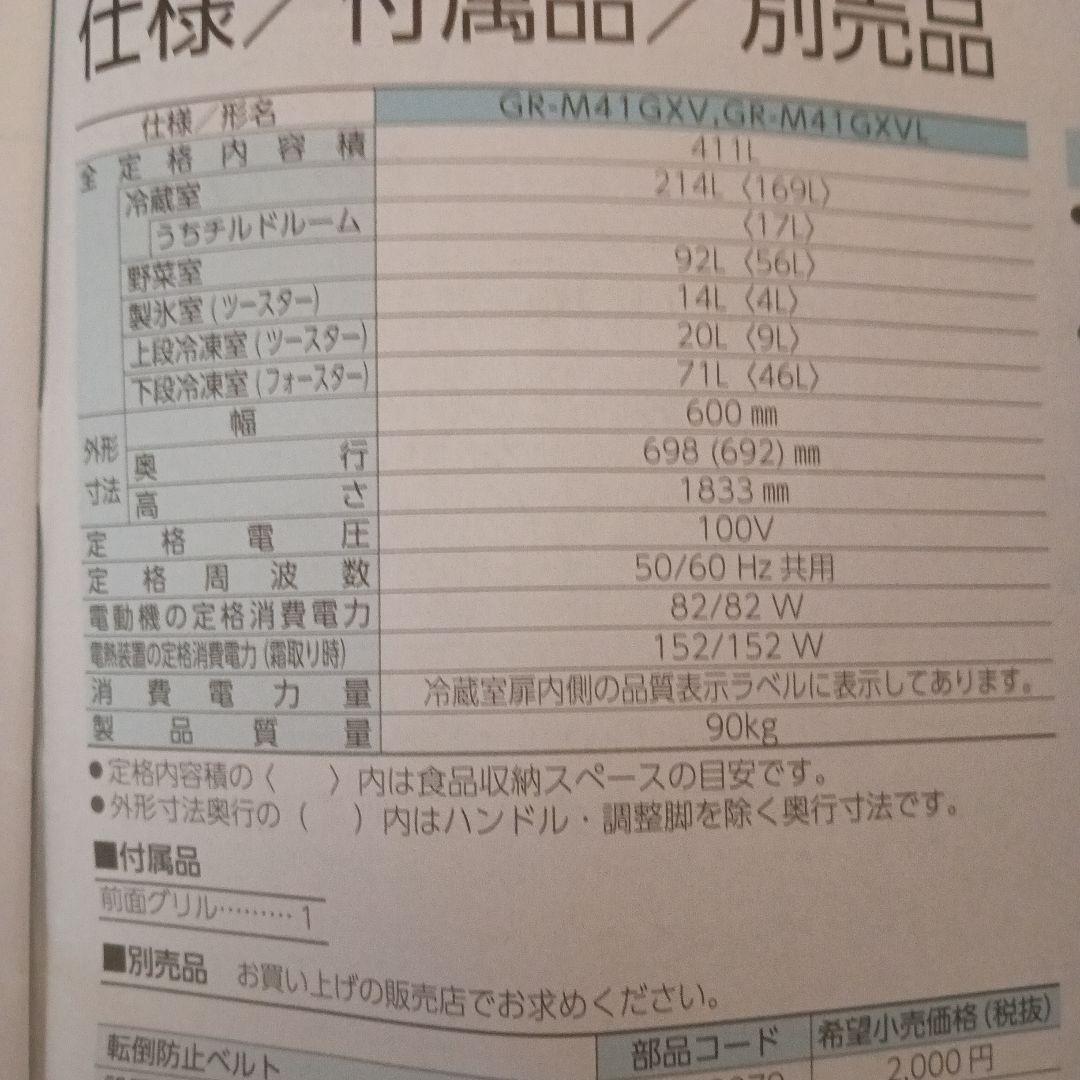 仕様／付属品／別売品
仕様／形名 GR-M41GXV,GR-M41GXVL
全定格内容積 411L
冷蔵室 214L〈169L〉
うちチルドルーム 〈17L〉
野菜室 92L〈56L〉
製氷室(ツースター) 14L〈4L〉
上段冷凍室(ツースター) 20L〈9L〉
下段冷凍室(フォースター) 71L〈46L〉
外形寸法 幅 600㎜
奥行 698(692)㎜
高さ 1833㎜
定格電圧 100V
定格周波数 50/60 Hz共用
電動機の定格消費電力 82/82 W
電熱装置の定格消費電力(霜取り時) 152/152 W
消費電力量 冷蔵室扉内側の品質表示ラベルに表示してあります。
製品質量 90kg
●定格内容積の〈　〉内は食品収納スペースの目安です。
●外形寸法奥行の（　）内はハンドル・調整脚を除く奥行寸法です。
■付属品
前面グリル………1
■別売品 お買い上げの販売店でお求めください。
部品コード 希望小売価格(税抜)
転倒防止ベルト 2,000円